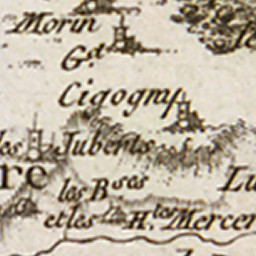 Morin
Gd
Cigogny
les Juberts
re
les Bses Lu
et les Htes Mercer